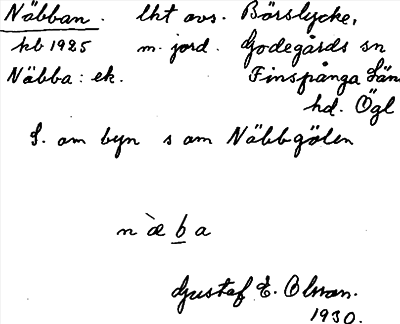 Näbban. lht avs. Börslycke,
hb 1925 m. jord. Godegårds sn
Näbba: ek. Finspånga län
hd. Ögl
S. om byn s om Näbbgölen
n æ̀ b a
Gustaf E. Olsson.
1930.